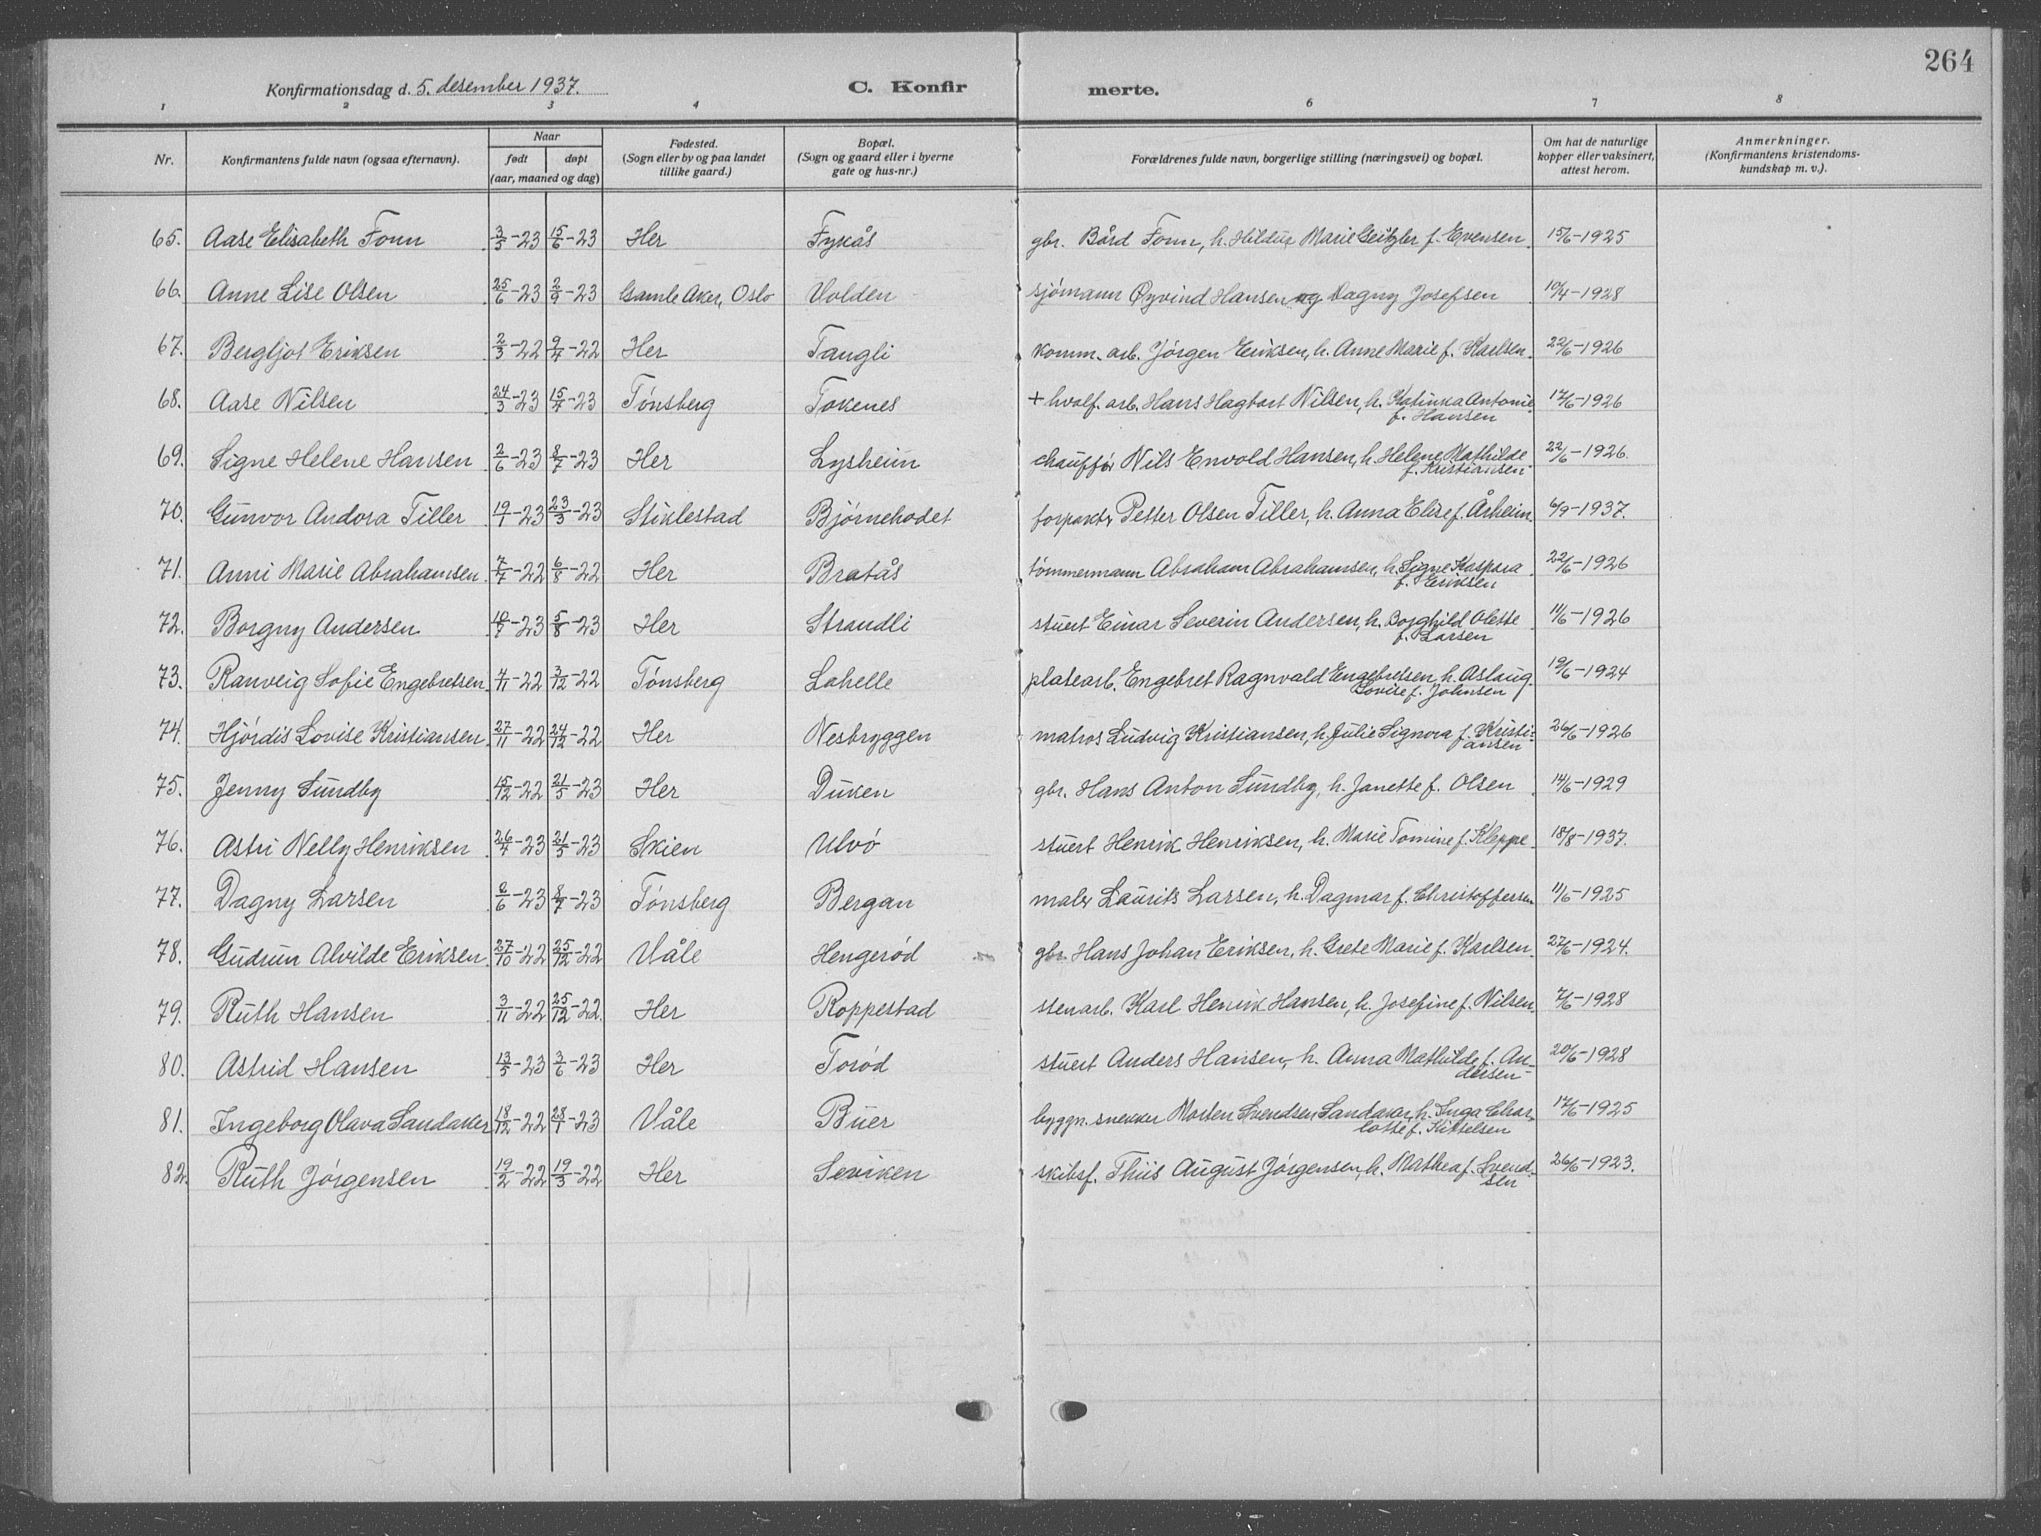 264
Konfirmationsdag d. 5. desember 1937. C. Konfirmerte.
1 2 3 4 6 7 8
Nr. Konfirmantens fulde navn (ogsaa efternavn). Naar født døpt (aar, maaned og dag) Fødested. (Sogn eller by og paa landet tillike gaard.) Bopæl. (Sogn og gaard eller i byerne gate og hus-nr.) Forældrenes fulde navn, borgerlige stilling (næringsvei) og bopæl. Om hat de naturlige kopper eller vaksinert, attest herom. Anmerkninger. (Konfirmantens kristendomskundskap m. v.).
65. Aase Elisabeth Fonn 3/5-23 15/6-23 Her Fykås gbr. Bård Fonn, h. Hildur Marie Geitzler f. Evensen 15/6-1925
66. Anne Lise Olsen 25/6-23 2/9-23 Gamle Aker, Oslo Volden sjömann Øyvind Hansen og Dagny Josefsen 10/4-1928
67. Bergljot Eriksen 2/3-22 9/4-22 Her Tangli komm. arb. Jørgen Eriksen, h. Anne Marie f. Karlsen 22/6-1926
68. Aase Nilsen 24/3-23 15/4-23 Tønsberg Tokenes + hvalf. arb. Hans Hagbart Nilsen, h. Katinka Antonie f. Hansen 17/6-1926
69. Signe Helene Hansen 2/6-23 8/7-23 Her Lysheim chauffør Nils Envold Hansen, h. Helene Mathilde f. Kristiansen 22/6-1926.
70. Gunvor Andora Tiller 19/1-23 23/3-23 Stiklestad Bjørnehodet forpakter Petter Olsen Tiller, h. Anna Elise f. Årheim 6/9-1937.
71. Anni Marie Abrahamsen 7/7-22 6/8-22 Her Bratås tömmermann Abraham Abrahamsen, h. Signe Kaspara f. Eriksen 22/6-1926
72. Borgny Andersen 10/7-23 5/8-23 Her Strandli stuert Einar Severin Andersen, h. Borghild Olette f. Larsen 11/6-1926
73. Ranveig Sofie Engebretsen 4/11-22 3/12-22 Tønsberg Lahelle platearb. Engebret Ragnvald Engebretsen h. Aslaug Lovise f. Johnsen 19/6-1924
74. Hjördis Lovise Kristiansen 27/11-22 24/12-22 Her Nesbryggen matros Ludvig Kristiansen, h. Julie Signora f. Kristiansen 26/6-1926
75. Jenny Sundby 15/12-22 21/5-23 Her Duken gbr. Hans Anton Sundby, h. Janette f. Olsen 14/6-1929
76. Astri Nelly Henriksen 26/4-23 21/5-23 Skien Ulvö stuert Henrik Henriksen, h. Marie Tomine f. Kleppe 18/8-1937.
77. Dagny Larsen 2/6-23 8/7-23 Tønsberg Bergan maler Laurits Larsen, h. Dagmar f. Christoffersen 11/6-1925
78. Gudrun Alvilde Eriksen 27/10-22 25/12-22 Våle Hengerød gbr. Hans Johan Eriksen, h. Grete Marie f. Karlsen 27/6-1924.
79. Ruth Hansen 3/11-22 25/12-22 Her Roppestad stenarb. Karl Henrik Hansen, h. Josefine f. Nilsen 7/6-1928
80. Astrid Hansen 13/5-23 3/6-23 Her Torød stuert Anders Hansen, h. Anna Mathilde f. Andersen 20/6-1928
81. Ingeborg Olava Sandaker 18/12-22 28/1-23 Våle Buer byggn. snekker Morten Svendsen Sandaker, h. Inga Charlotte f. Kittelsen 17/6-1925
82. Ruth Jørgensen 19/2-22 19/3-22 Her Seviken skibsf. Thiis August Jørgensen, h. Mathea f. Svendsen 26/6-1923.